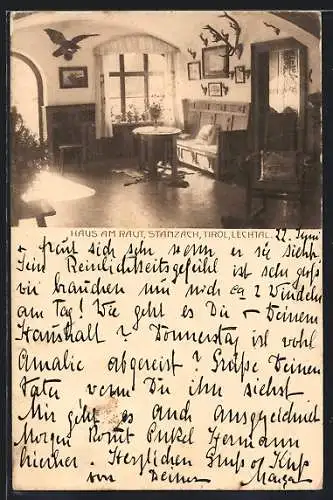 HAUS AM RAUT, STANZACH, TIROL, LECHTAL.
22. Juni
+ freut sich sehr wenn er sie sieht.
Sein Reinlichkeitsgefühl ist sehr groß
wir brauchen nur noch ca 2 Windeln
am Tag! Wie geht es Dir – Deinem
Haushalt? Donnerstag ist wohl
Amalie abgereist? Grüße Deinen
Vater wenn Du ihn siehst.
Mir geht es auch ausgezeichnet
Morgen komt Onkel Hermann
hierher. Herzlichen Gruß & Kuß
von Deiner